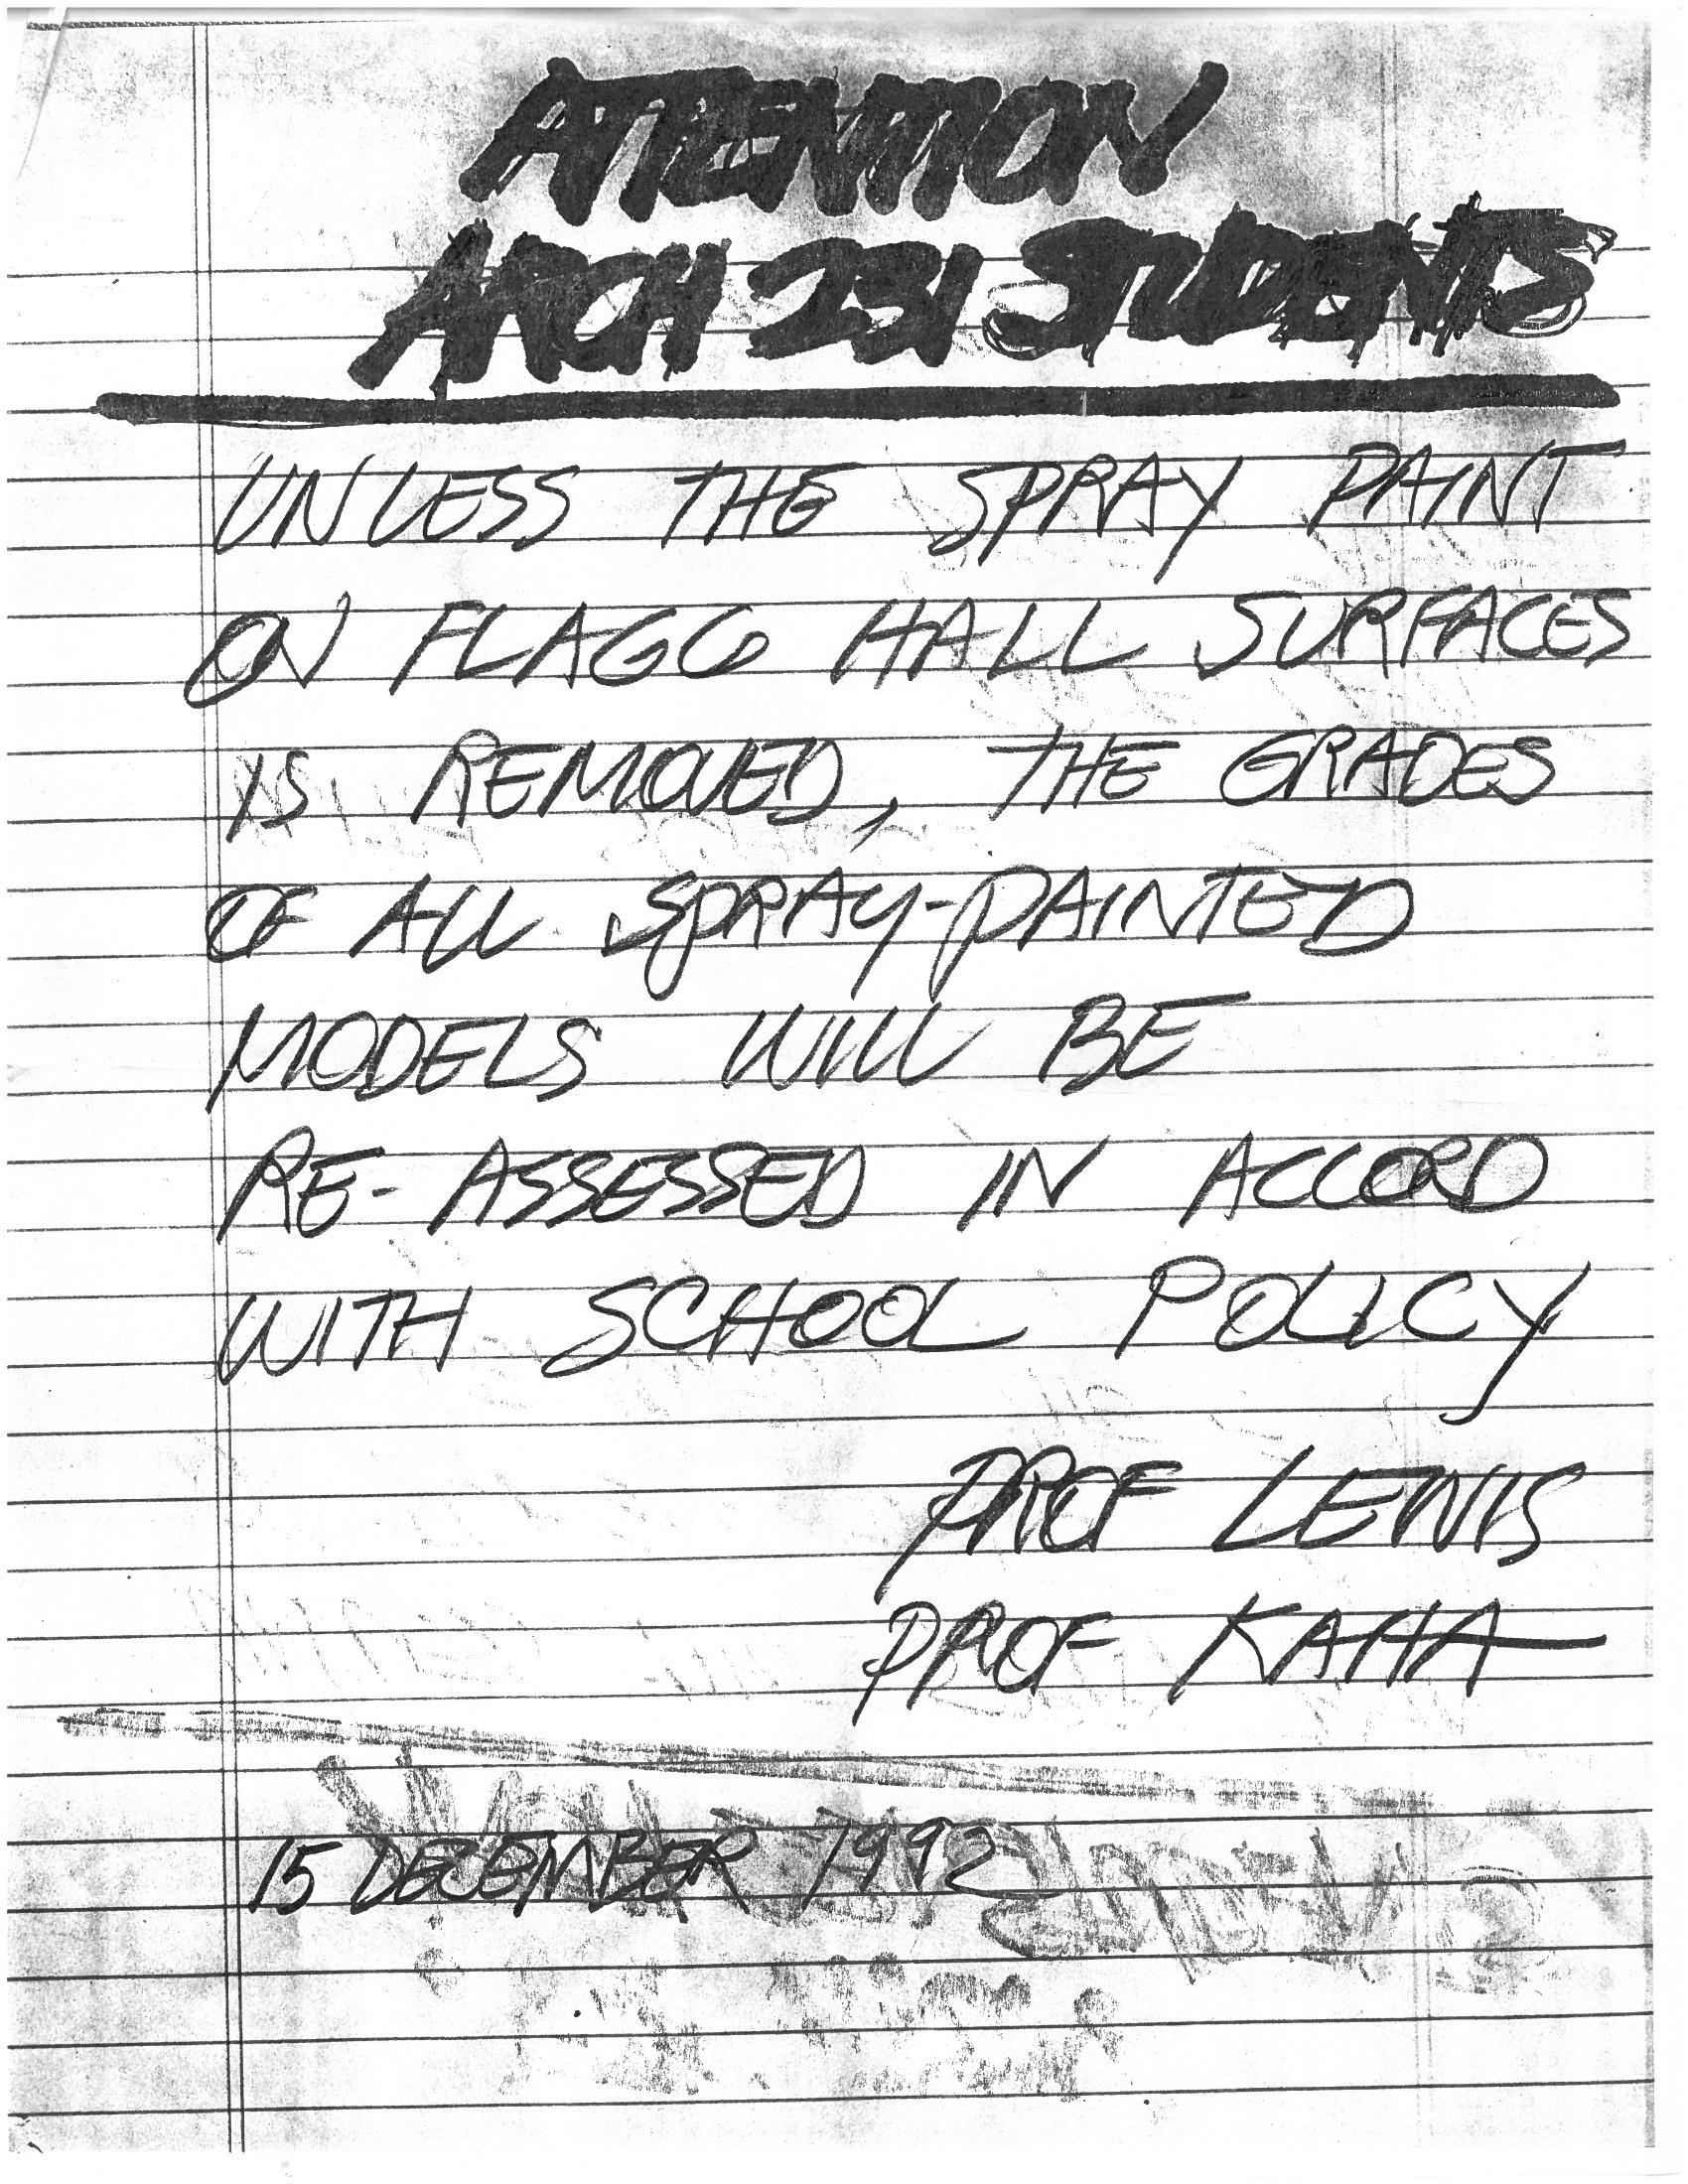 ATTENTION
ARCH 231 STUDENTS
UNLESS THE SPRAY PAINT
ON FLAGG HALL SURFACES
IS REMOVED, THE GRADES
OF ALL SPRAY-PAINTED
MODELS WILL BE
RE-ASSESSED IN ACCORD
WITH SCHOOL POLICY
PROF LEWIS
PROF KAHA
15 DECEMBER 1992